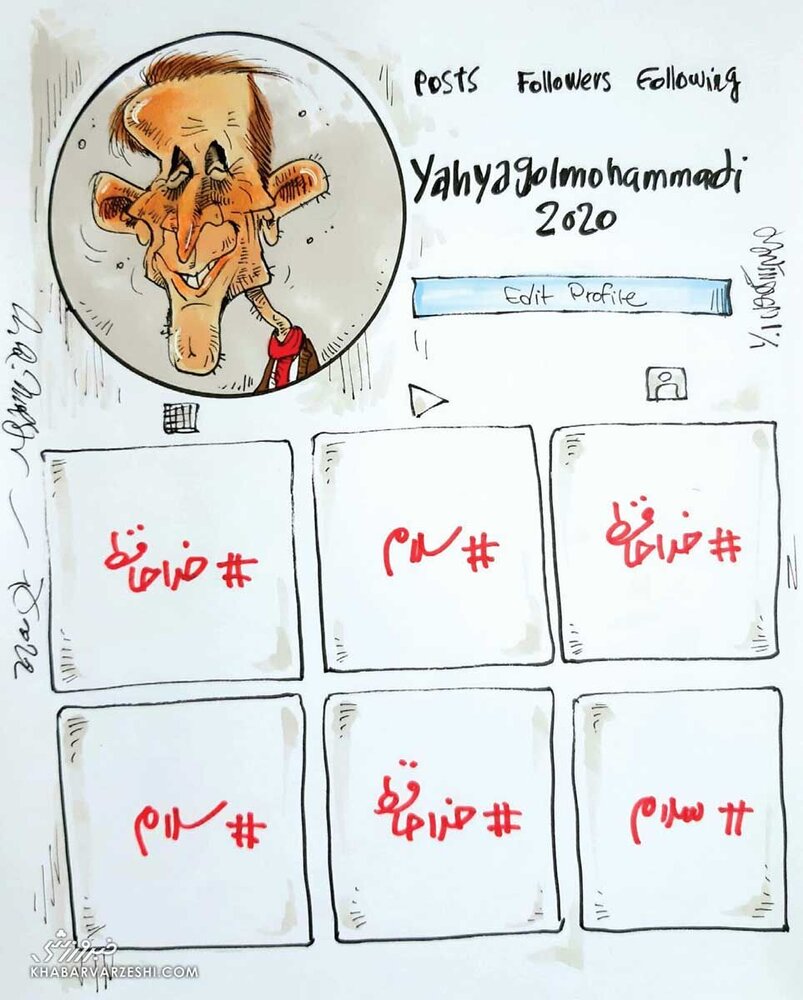 Posts Followers Following
Yahyagolmohammadi
2020
Edit Profile
#خداحافظ
#سلام
#خداحافظ
#سلام
#خداحافظ
#سلام
خبرورزشی
KHABARVARZESHI.COM